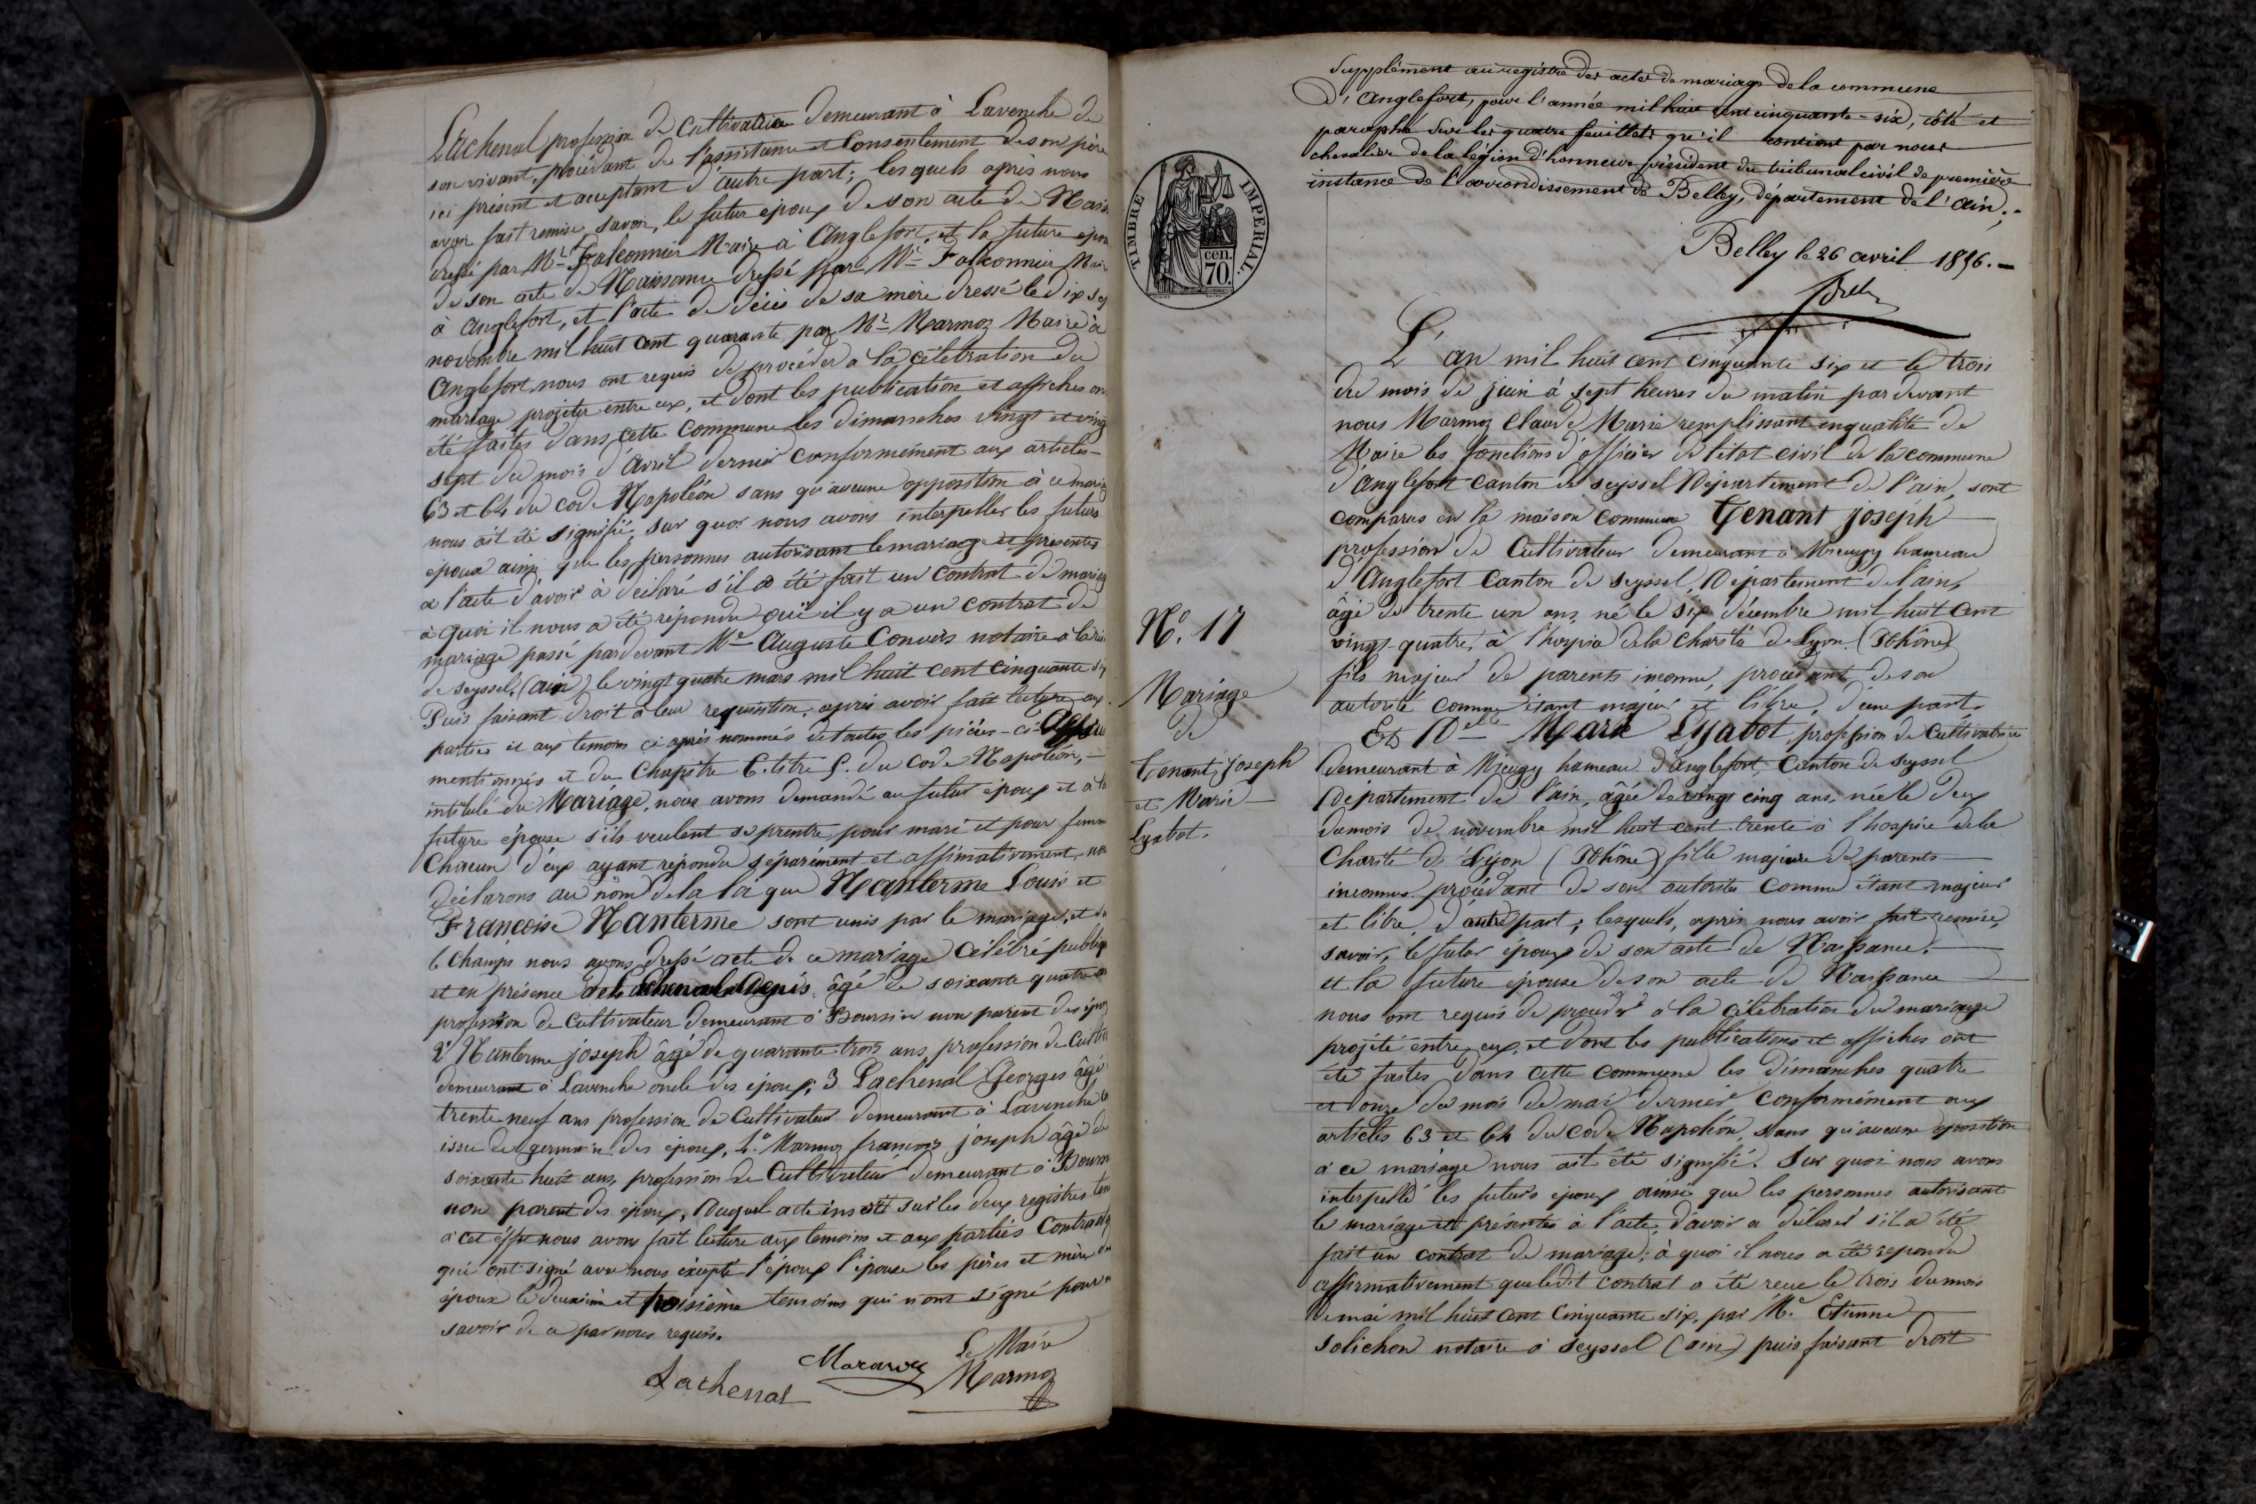 Lachenal profession de Cultivatrice demeurant à Lavenche de
son vivant, procédant de l'assistance et Consentement de son père
ici présent et acceptant d'autre part; lesquels après nous
avoir fait remise, savoir, le futur époux de son acte de Nais
dressé par Mr Falconnier Maire à Anglefort, et la future épou
de son acte de Naissance dressé par Mr Falconnier Mair
à Anglefort, et l'acte de décès de sa mère dressé le dix sep
novembre mil huit cent quarante par Mr Marmoz Maire à
Anglefort nous ont requis de procéder à la célébration du
mariage projeter entre eux, et dont les publication et affiches on
été faites dans cette Commune les dimanches vingt et ving
sept du mois d'avril dernier conformément aux articles
63 et 64 du code Napoléon sans qu'aucune opposition à ce maria
nous ait été signifié, sur quoi nous avons interpeller les futurs
époux ainsi que les personnes autorisant le mariage et presentes
a l'acte d'avoir à déclaré s'il a été fait un Contrat de mariag
à quoi il nous a été répondu oui il y a un contrat de
mariage passé pardevant Me Auguste Convers notaire à
de Seyssel (ain) le vingt quatre mars mil huit cent cinquante six
Puis faisant droit à leur requisition, après avoir fait lecture aux
parties et aux temoins ci après nommés de toutes les pièces ci
mentionnés et du Chapitre 6. titre 5. du code Napoléon,
intitulé du Mariage, nous avons demandé au futur époux et à la
future épouse s'ils veulent se prentre pour mari et pour femm
Chacun d'eux ayant répondu séparément et affimativement, no
déclarons au nom de la loi que Nanterme Louis et
Françoise Nanterme sont unis par le mariage, et de
le Champs nous avons dressé acte de ce mariage Célébré publiq
et en présence de Lachenal âgé de soixante quatre
profession de cultivateur demeurant à Boursin non parent des épou
2° Nanterme joseph âgé de quarante trois ans, profession de Cultiv
demeurant à Lavenche oncle des époux; 3 Lachenal Georges âgé
trente neuf ans profession de Cultivateur demeurant à Lavenche
issu de germain des époux, 4° Marmoz françois joseph âgé de
soixante huit ans profession de Cultivateur demeurant à Bours
non parent des époux, Duquel acte inscrit sur les deux registres ten
à cet effet nous avons fait lecture aux temoins et aux parties Contracta
qui ont signé avec nous excepté l'époux l'épouse les pères et mère
époux le deuxième et troisième temoins qui n'ont signé pour
savoir de ce par nous requis.
Le Maire
Lachenal Marmoz Marmoz
Supplément au registre des actes de mariage de la commune
d'Anglefort, pour l'année mil huit cent cinquante-six, côté et
paraphé sur les quatre feuillets qu'il contient par nous
chevalier de la légion d'honneur président du tribunal civil de première
instance de l'arrondissement de Belley, département de l'ain.
Belley le 26 avril 1856.
TIMBRE IMPERIAL.
cen.
70.
L'an mil huit cent cinquante six et le trois
du mois de juin à sept heures du matin par devant
nous Marmoz Claude Marie remplissant en qualité de
Maire les fonctions d'officier de l'état civil de la commune
d'Anglefort Canton de Seyssel Département de l'ain, sont
comparus en la maison Commune Tenant Joseph
profession de Cultivateur demeurant à Mieugy hameau
d'Anglefort Canton de Seyssel, Département de l'ain,
âgé de trente un ans, né le six décembre mil huit cent
vingt-quatre, à l'hospice de la Charité de Lyon (Rhône)
fils majeur de parents inconnu, procédant de son
autorité comme étant majeur et libre, d'une part.
Et Delle Marie Lyabot, profession de Cultivatrice
demeurant à Mieugy hameau d'anglefort, Canton de Seyssel
Département de l'ain, âgée de vingt cinq ans, née le deux
du mois de novembre mil huit cent trente à l'hospice de la
Charité de Lyon (Rhône) fille majeure de parents
inconnus procédant de son autorité comme étant majeur
et libre, d'autre part; lesquels, après nous avoir fait remise,
savoir, le futur époux de son acte de Naissance,
et la future épouse de son acte de Naissance
nous ont requis de procéder à la célébration du mariage
projété entre eux, et dont les publications et affiches ont
été faites dans cette Commune les dimanches quatre
et onze du mois de mai dernier conformément aux
articles 63 et 64 du Code Napoléon, sans qu'aucune opposition
à ce mariage nous ait été signifié. Sur quoi nous avons
interpellé les futurs époux ainsi que les personnes autorisant
le mariage et présentes à l'acte, d'avoir a déclaré s'il a été
fait un contrat de mariage; à quoi il nous a été repondu
affirmativement que ledit contrat a été reçue le trois du mois
de mai mil huit cent Cinquante six, par Me Etienne
Solichon notaire à Seyssel (ain) puis faisant droit
N°. 17
Mariage
de
Tenant, Joseph
et Marie
Lyabot.